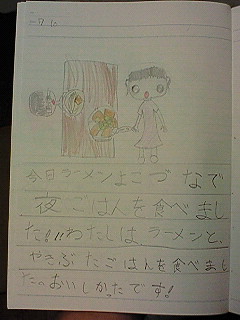 今日ラーメンよこづなで
夜ごはんを食べまし
た!!わたしはラーメンと、
やきぶたごはんを食べまし
た。おいしかたです!